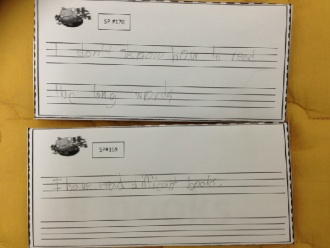 SP #170
I don't know how to read
the long words
SP#169
I have read difficult books.